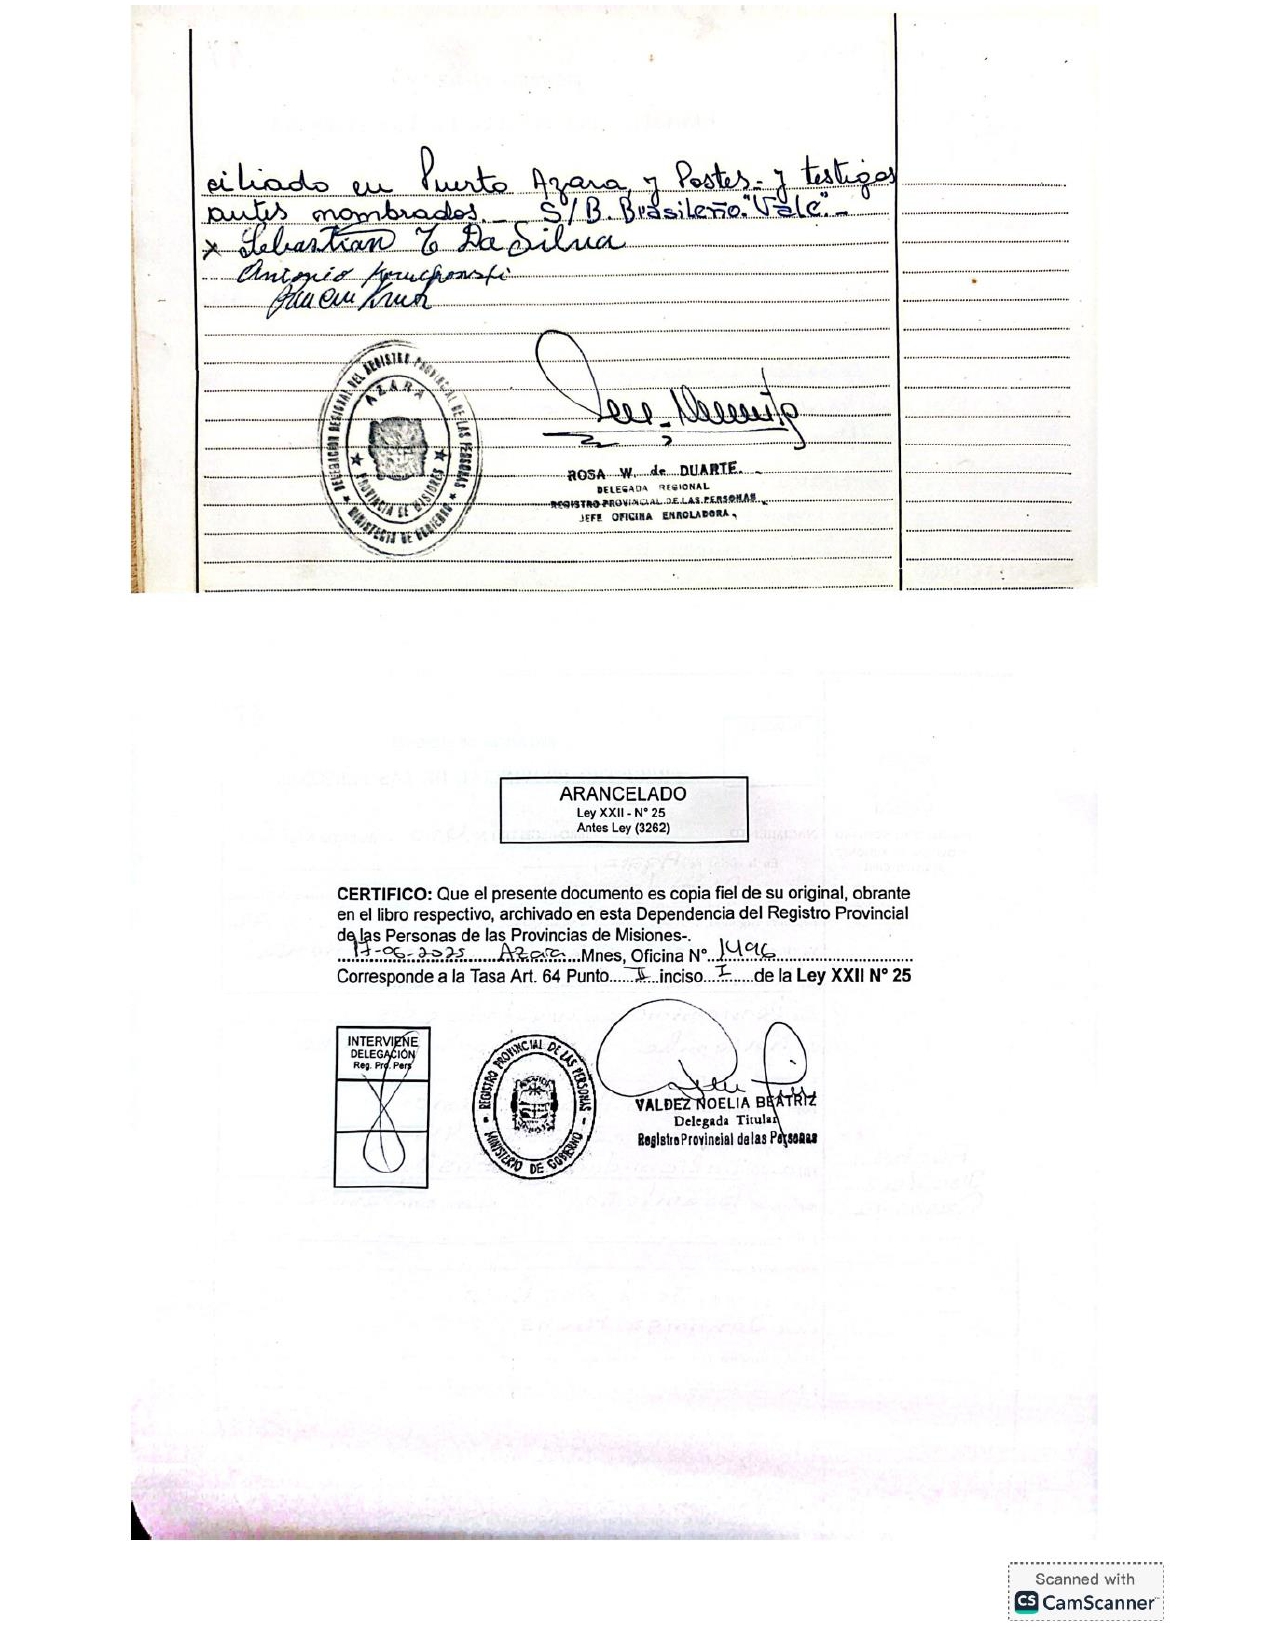 ciliado en Puerto Azara, y Postes.- y testigos
antes nombrados.- S/B. Brasileño."Vale".-
x Sebastian T Da Silva
Antonio
DELEGACION REGIONAL DEL REGISTRO PROVINCIAL DE LAS PERSONAS
★ MINISTERIO DE GOBIERNO ★
AZARA
★ PROVINCIA DE MISIONES ★
ROSA W. de DUARTE.
DELEGADA REGIONAL
REGISTRO PROVINCIAL DE LAS PERSONAS
JEFE OFICINA ENROLADORA
ARANCELADO
Ley XXII - Nº 25
Antes Ley (3262)
CERTIFICO: Que el presente documento es copia fiel de su original, obrante
en el libro respectivo, archivado en esta Dependencia del Registro Provincial
de las Personas de las Provincias de Misiones-.
17-06-2025 Azara Mnes, Oficina Nº 1496
Corresponde a la Tasa Art. 64 Punto II inciso I de la Ley XXII Nº 25
INTERVIENE
DELEGACIÓN
Reg. Pro. Pers
REGISTRO PROVINCIAL DE LAS PERSONAS
- MINISTERIO DE GOBIERNO -
VALDEZ NOELIA BEATRIZ
Delegada Titular
Registro Provincial de las Personas
Scanned with
CS CamScanner